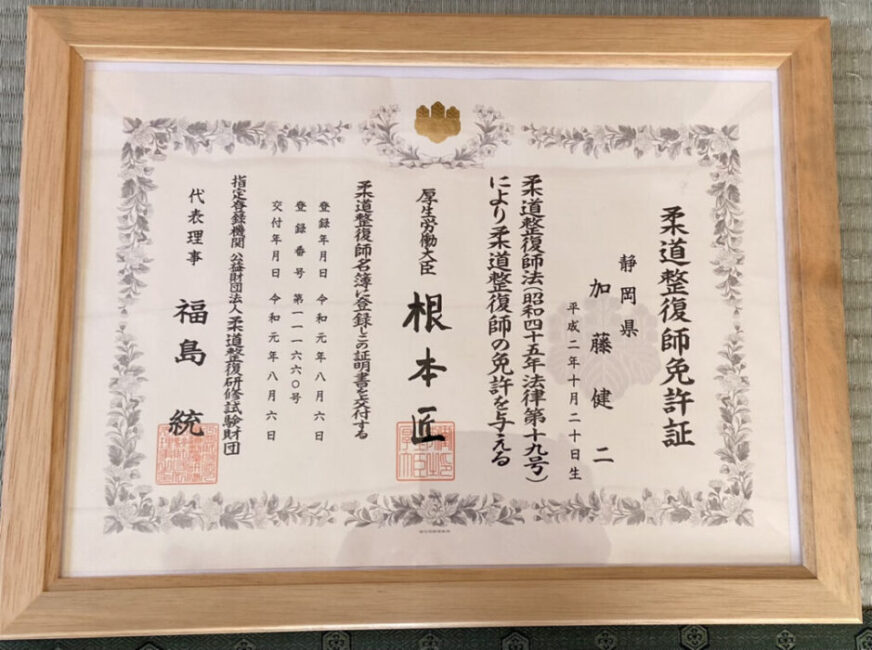 柔道整復師免許証
静岡県
加藤健二
平成二年十月二十日生
柔道整復師法(昭和四十五年法律第十九号)
により柔道整復師の免許を与える
厚生労働大臣 根本匠
柔道整復師名簿に登録しこの証明書を交付する
登録年月日 令和元年八月六日
登録番号 第一一一六六〇号
交付年月日 令和元年八月六日
指定登録機関 公益財団法人柔道整復研修試験財団
代表理事 福島統